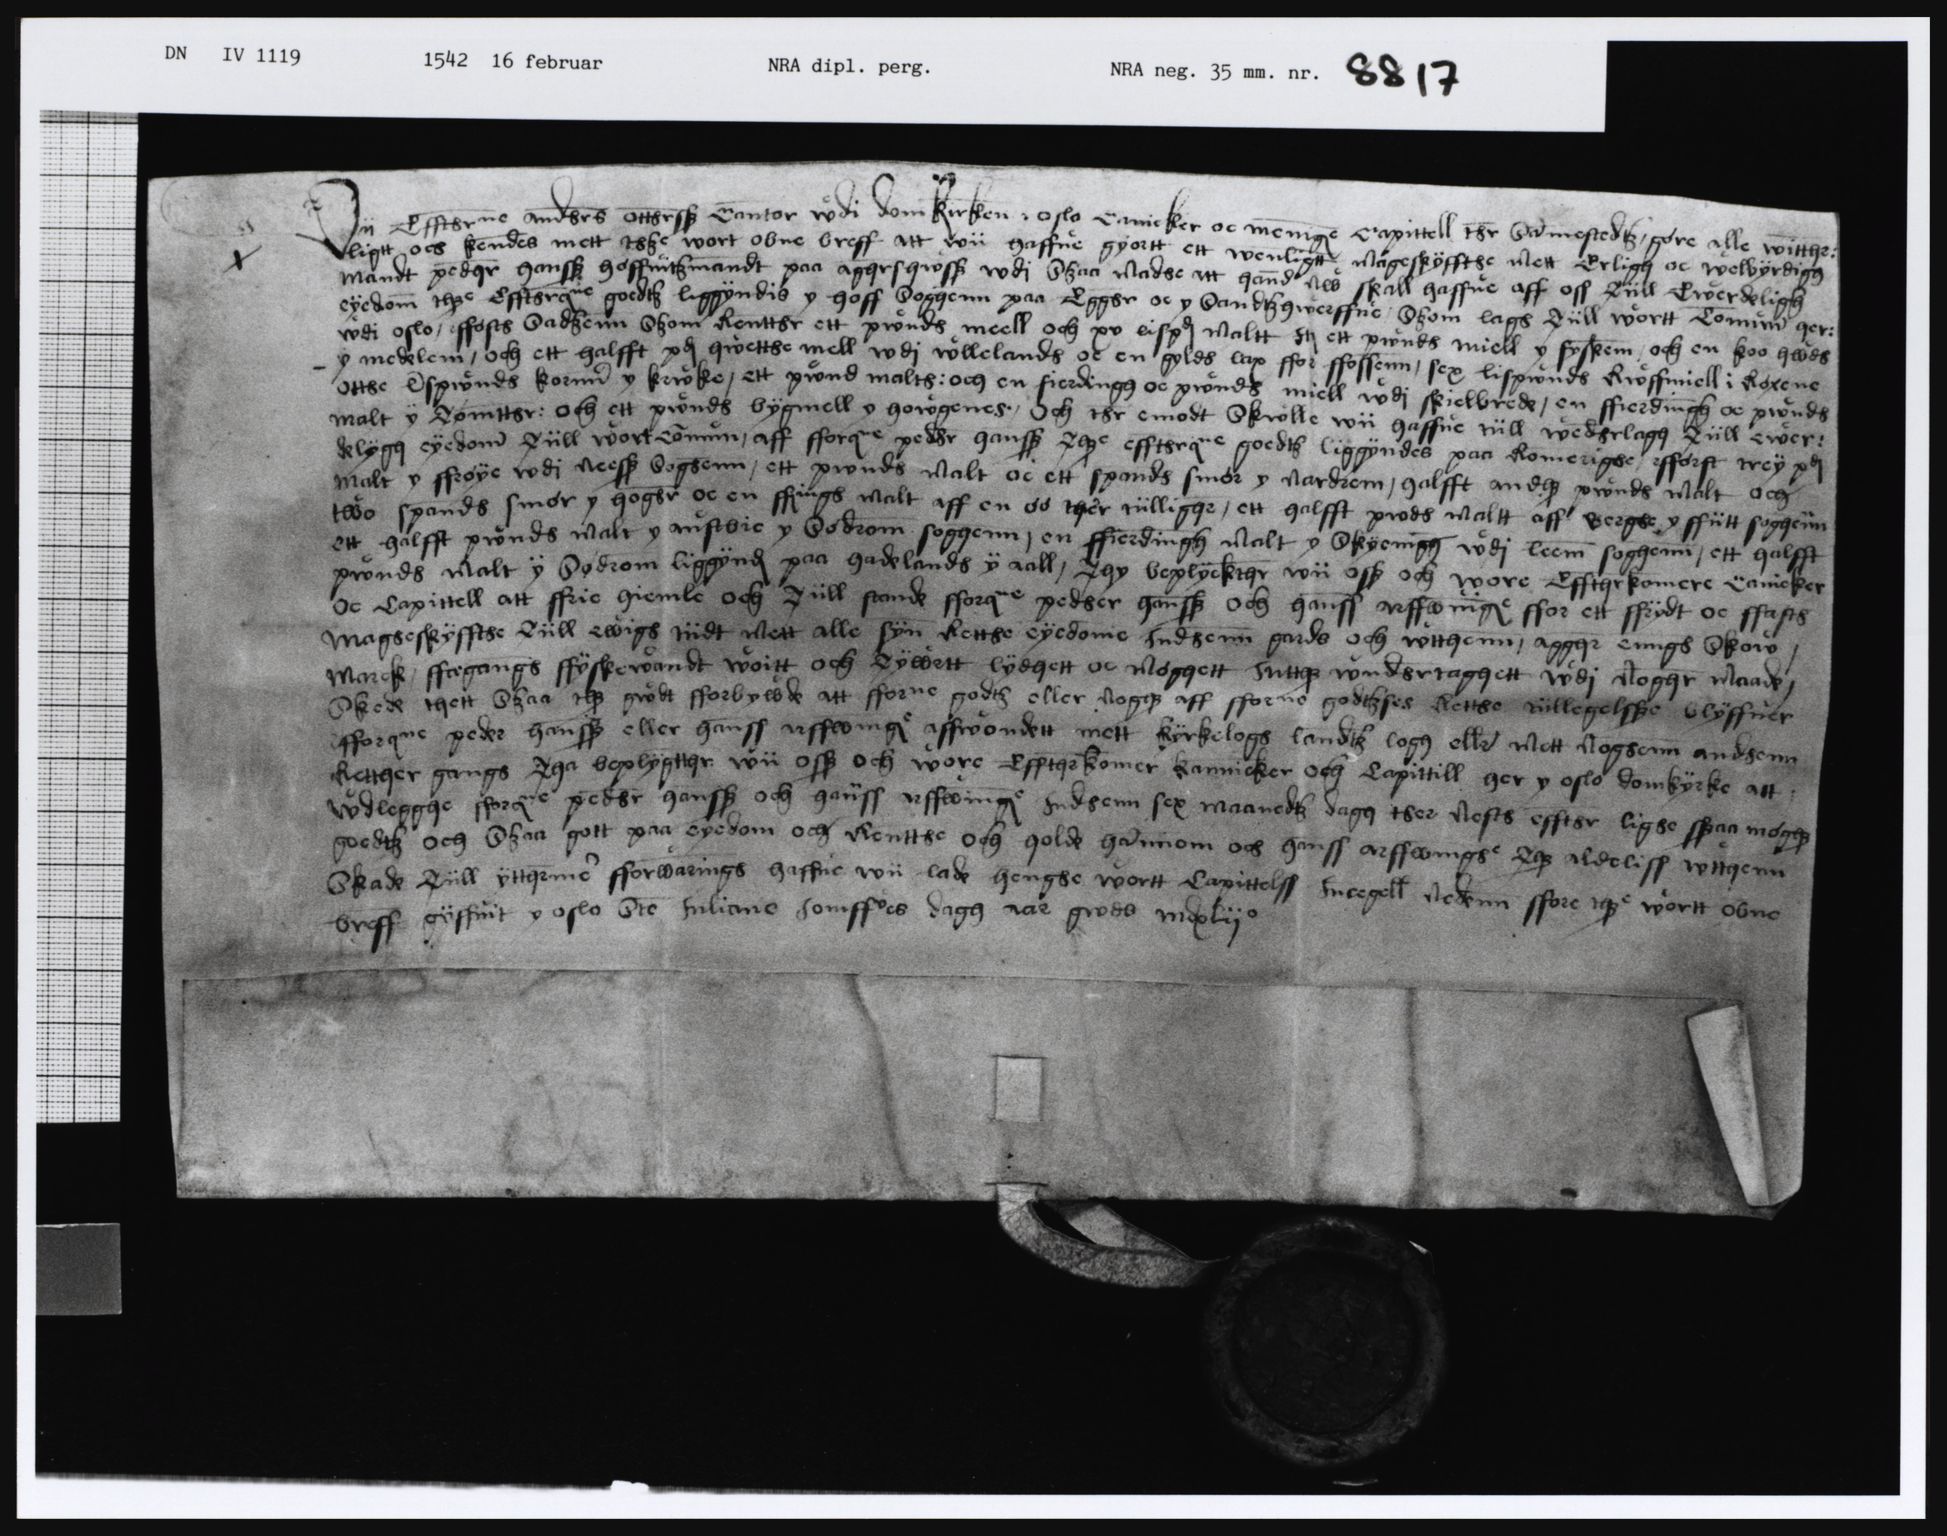 DN IV 1119 1542 16 februar NRA dipl. perg. NRA neg. 35 mm. nr. 8817
Wii Effthrne anders ottherss Cantor wdi domkirken i oslo Canicker oc menige Capittell ther Sammestedtz, gøre alle witther:
ligtt och kendes mett thze wort obne breff att wii haffue gyortt ett wenligtt Mageskyffthe Mett Erligh oc welbyrdigh
mandt pedher hanss høffuitzmandt paa aghershwss wdi Szaa Madhe att hand skall haffue aff oss Tiill Ewerdeligh
eyedom thze goedtz liggyndis y hoff Soghenn paa Egger oc y Sandzhwerffue, Szom lage Tiill wortt Comun her:
wdi oslo, fførste Szom Rentther ett pwnds meell och xv lispd Maltt ett pwnds miell y fysken, och en koo hwds
y medelem, och ett halfft pd hwetthe mell wdi wllelands oc en gylds lax ffor ffossenn, sex lispwnds Rwffmiell i Røxene
otthe lispwnds kornn y krwke, ett pwnd malts: och en fierdingh oc pwnds miell wdi skielbrede, en ffierdingh oc pwnds
malt y Tomtther: och ett pwnds bygmell y howgenes, Och ther emodt Skwlle wii haffue tiill wedherlagh Tiill ewer:
delygh eyedom Tiill wort Comun, aff fforne pedher hanss goedtz liggyndes paa Romerighe, først trey pd
malt y ffrøye wdi Neess Soghenn, ett pwnds Malt oc ett spands smør y Nardrem, halfft andhet pwnds Malt och
two spands smør y hogher oc en Malt aff en øø ther tiilligher, ett halfft pwds Maltt aff Berghe y ffiitt soghenn
ett halfft pwnds Malt y austwic y Sødrom soghenn, en ffierdingh Malt y Skyeniggh wdi leem soghenn, ett halfft
pwnds Malt y Sødrom liggynd paa hadelands y aall, Thy beplyckther wii oss och wore Effterkomere Canicker
oc Capittell att ffrie hiemle och Tiill stande fforne pedher hanss och hanss arffwinge ffor ett ffrydt oc ffasts
Magheskyffthe Tiill ewigh tiidt Mett alle syn Retthe eyedome Indhenn gards och wtthenn, aggher enngs Skow,
Marck, ffægangs ffyskewandt woitt och Tywrtt lydhett oc Møghett Intthet wndhertaghett wdi Nogher Maade,
Skede thett Szaa thet gwdt fforbywde att fforne godtz eller Noghet aff fforne godtzses Retthe tiillegelsse blyffuer
fforne peder hanss eller hanss arffwinge affwondett mett kyrkelogs landtz logh eller Mett Noghenn andhenn
Retther gangs Tha beplygtther wii oss och wore Effterkomer kannicker och Capittill her y oslo domkyrke att
wdlegghe fforne pedher hanss och hanss arffwinge Indhenn sex maanedtz dagh ther Nests effther lighe szaa møghet
goedtz och Szaa gott paa eyedom och Rentthe och holde hannom och hanss arffwinghe aldeliss wtthenn
Skade Tiill yttherme fforwarings haffue wii lade henghe wortt Capittelss Incegell Nedenn ffore wortt obne
breff gyffuit y oslo Ste Juliane Jomffwes dagh aar gwds mdxlijo